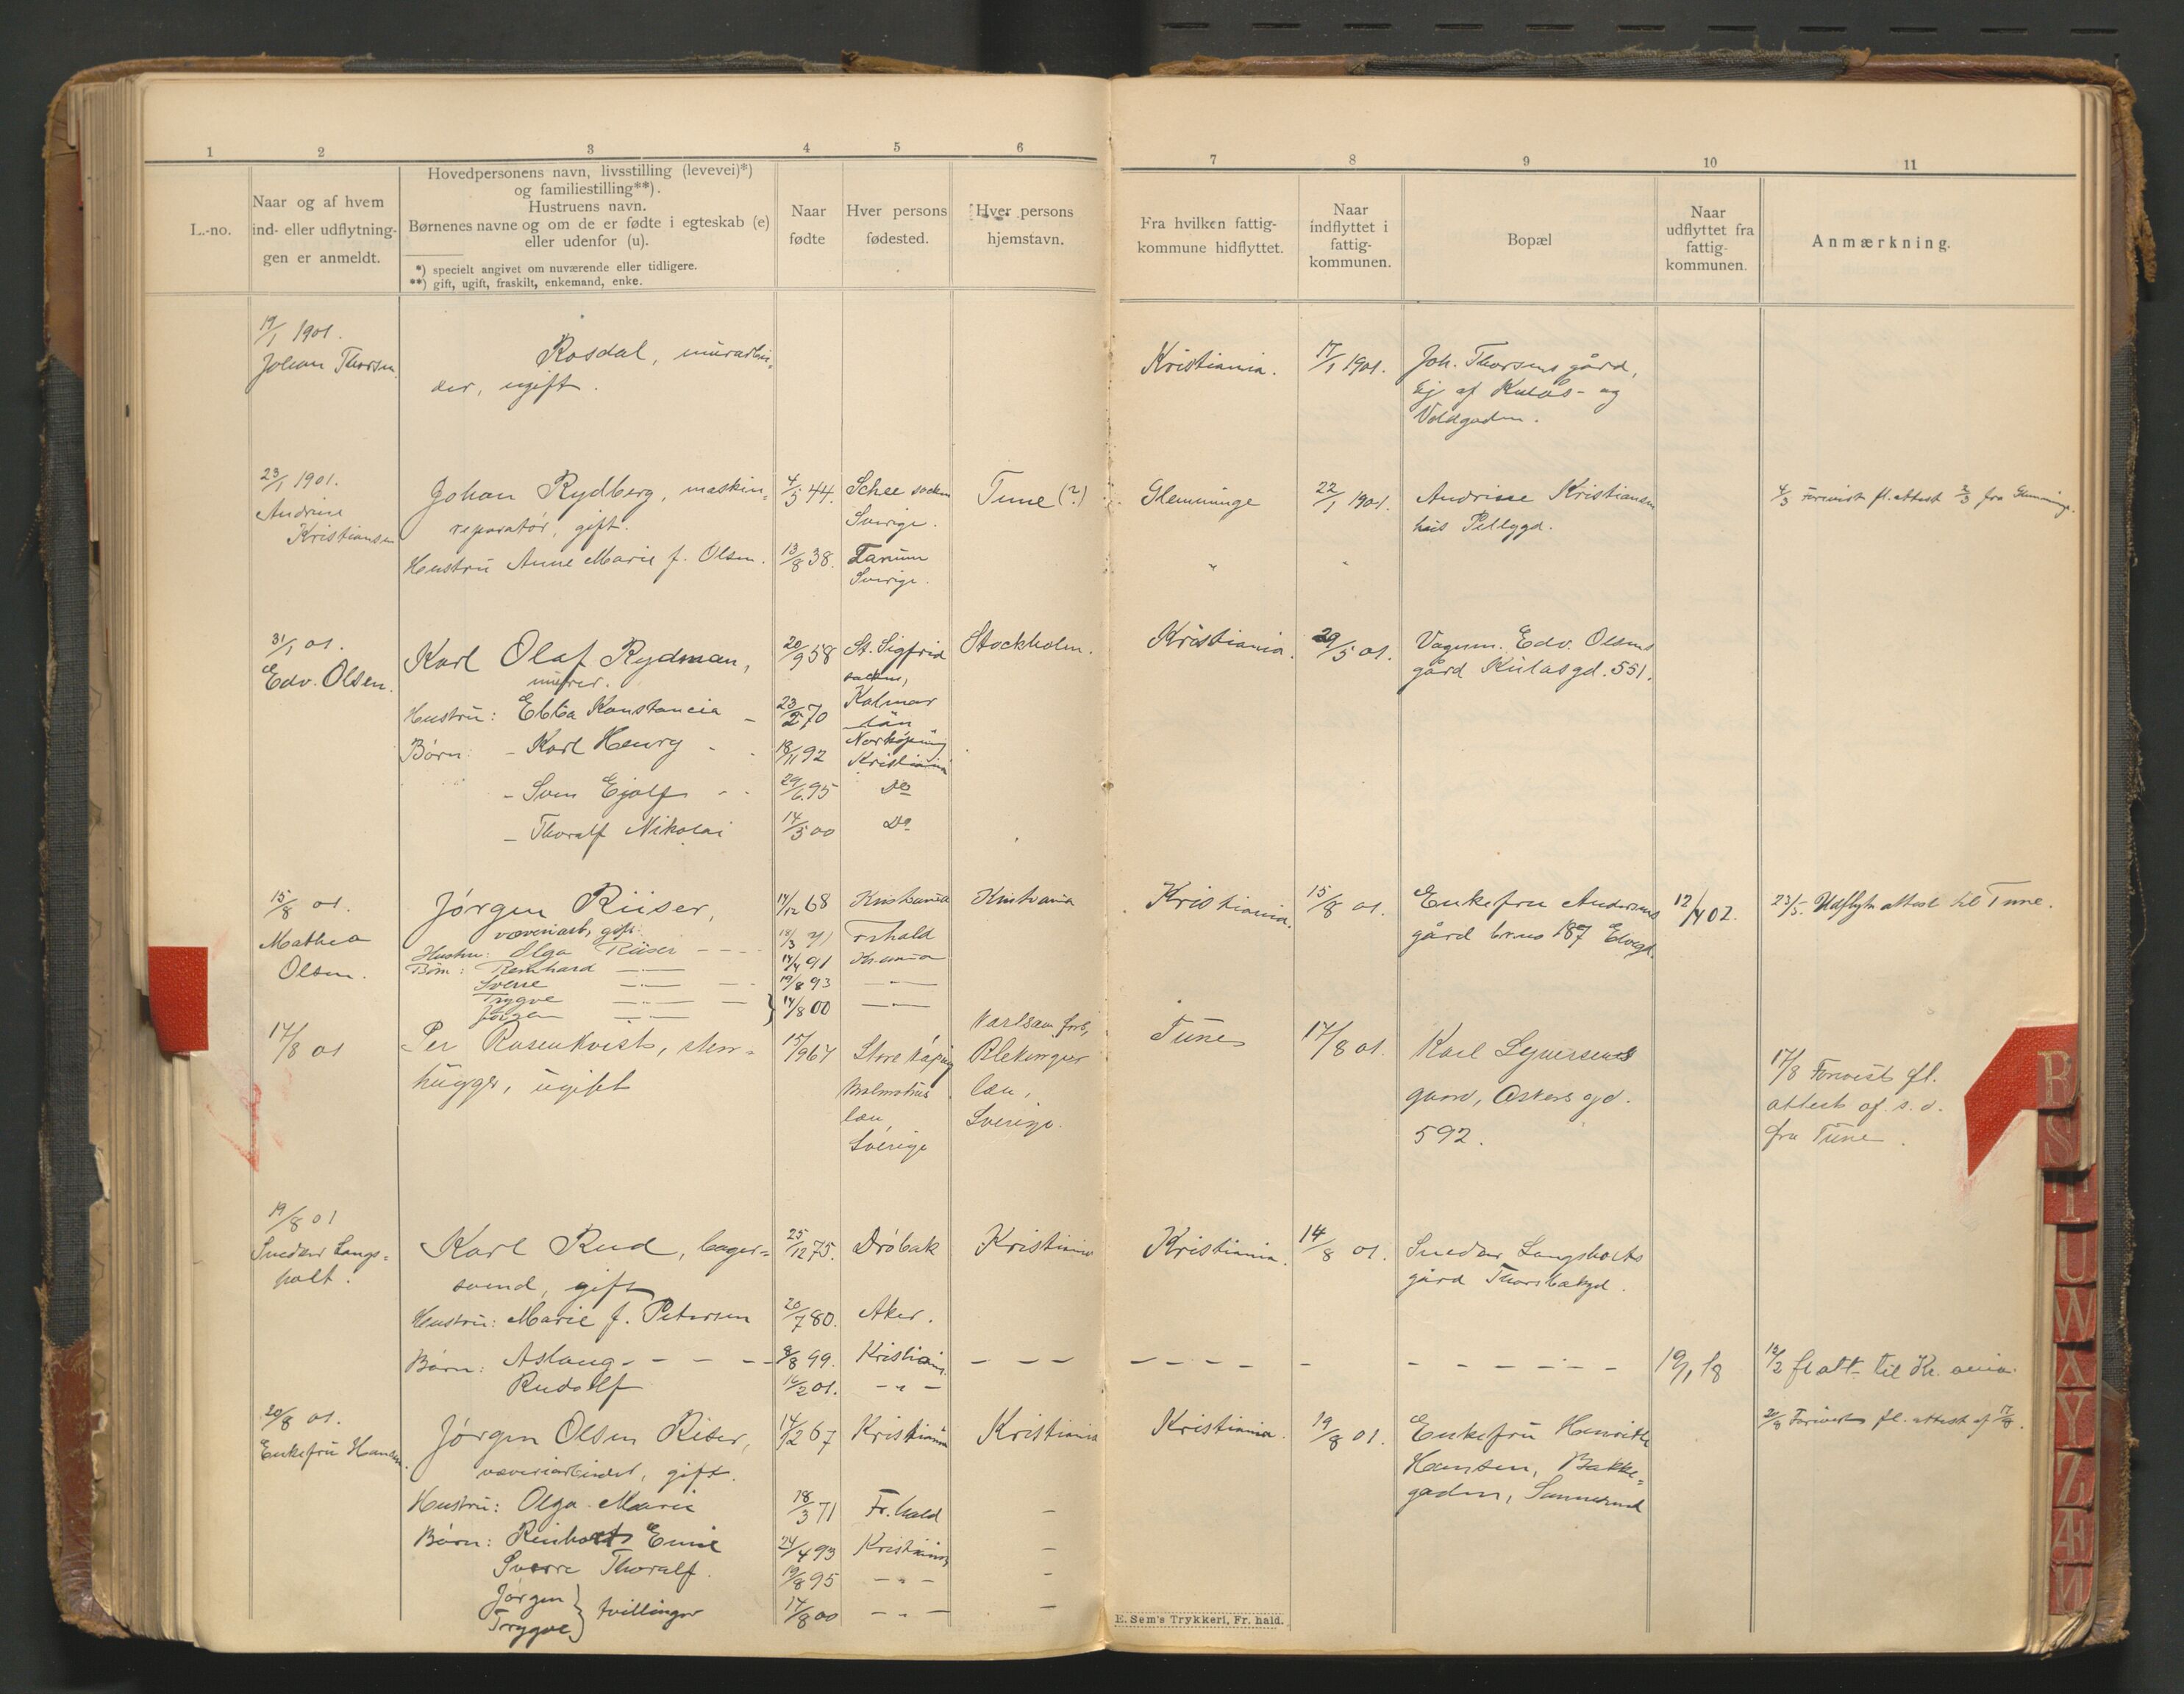 1 2 3 4 5 6 7 8 9 10 11
L.-no.
Naar og af hvem
ind- eller udflytning-
gen er anmeldt.
Hovedpersonens navn, livsstilling (levevei)*)
og familiestilling**).
Hustruens navn.
Børnenes navne og om de er fødte i egteskab (e)
eller udenfor (u).
*) specielt angivet om nuværende eller tidligere.
**) gift, ugift, fraskilt, enkemand, enke.
Naar
fødte
Hver persons
fødested.
Hver persons
hjemstavn.
Fra hvilken fattig-
kommune hidflyttet.
Naar
indflyttet i
fattig-
kommunen.
Bopæl
Naar
udflyttet fra
fattig-
kommunen.
Anmærkning.
19/1 1901.
Johan Thorsen.
Rosdal, murarbei-
der, ugift.
Kristiania. 17/1 1901. Joh. Thorsens gård,
Ej af Kulås- og
Voldgaden.
23/1 1901.
Andrine
Kristiansen
Johan Rydberg, maskin= 4/5 44. Schee socken Tune (?) Glemminge 22/1 1901. Andrine Kristiansen 4/3 Forevist fl. attest 2/3 fra Glemminge.
reparatør, gift. Sverige. hus Pellygd.
Hustru Anne Marie f. Olsen. 13/8 38. Tanum " "
Sverige.
31/1 01.
Edv. Olsen.
Karl Olaf Rydman, 20/9 58 St. Sigfrid Stockholm. Kristiania. 29/5 01. Vognm. Edv. Olsens
murer. socken, gård Kulåsgd. 551.
Hustru: Ebba Konstancia - 23/2 70 Kalmar
län
Norköping
Børn: - Karl Henry - - 18/11 92 Kristiania
- Sven Ejolf - - 29/6 95 Do
- Thoralf Nikolai 14/5 00 Do
15/8 01.
Mathea
Olsen.
Jørgen Riiser, 14/12 68 Kristiania Kristiania Kristiania. 15/8 01. Enkefru Andersens 12/4 02. 23/5. Udflytn attest til Tune.
væveriarb, gift. gård br.no 187
Hustru: Olga Riiser - - - 18/3 71 Frhald
Børn: Reinhard 14/4 91 Kr.ania
Sverre 19/8 93
Trygve
Jørgen } 14/8 00
17/8 01
Per Rosenkvist, sten= 15/9 67 Karlsam fors, Tune 17/8 01. Karl Syversens 17/8 Forevist fl.
hugger, ugift Malmöhus Blekinger gaard, Oskers gd. attest af s. d.
län län, 592. fra Tune.
Sverige Sverige.
19/8 01
Snedker Langs=
holt.
Karl Rud, bager= 25/12 75. Drøbak Kristiania Kristiania. 14/8 01. Snedker Langsholts
svend, gift gård Thorsbækgd.
Hustru: Marie f. Petersen 20/7 80. Aker.
Børn: Aslaug - - - - 8/8 99. Kristiania - - - - - - - - - - - - - - 19/1 18 12/2 fl att. til Kr. ania.
Rudolf 16/2 01. - " -
20/8 01.
Enkefru Hansen.
Jørgen Olsen Riser, 14/12 67 Kristiania Kristiania Kristiania. 19/8 01. Enkefru Henritte 20/8 Forevist fl. attest af 17/8.
væveriarbeider, gift. Hansen, Bakke=
gaden, Sannesund
Hustru: Olga Marie 18/3 71 Fr.hald -
Børn: Reinholt Emil 24/4 93 Kristiania -
Sverre Thoralf. 19/8 95 - " - -
Jørgen
Trygve } tvillinger 14/8 00 - " - -
E. Sem's Trykkeri, Fr. hald.
R
S
T
U
W
X
Y
Z
Æ